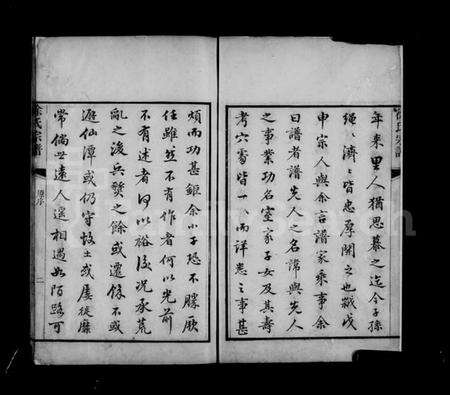 年來里人猶思慕之迄今子孫
繩繩濟濟皆忠厚開之也歲戊
申宗人與余言譜家乘事余
曰譜者譜先人之名諱與先人
之事業功名室家子女及其壽
考穴當皆一一而詳悉之事甚
煩而功甚鉅余小子恐不勝厥
任雖然不有作者何以光前
不有述者何以裕後況承荒
亂之後兵燹之餘或遷徙不或
避仙潭或仍守故土或屢徙靡
常倘世遠人遙相遇如陌路可
徐氏宗譜
序
二